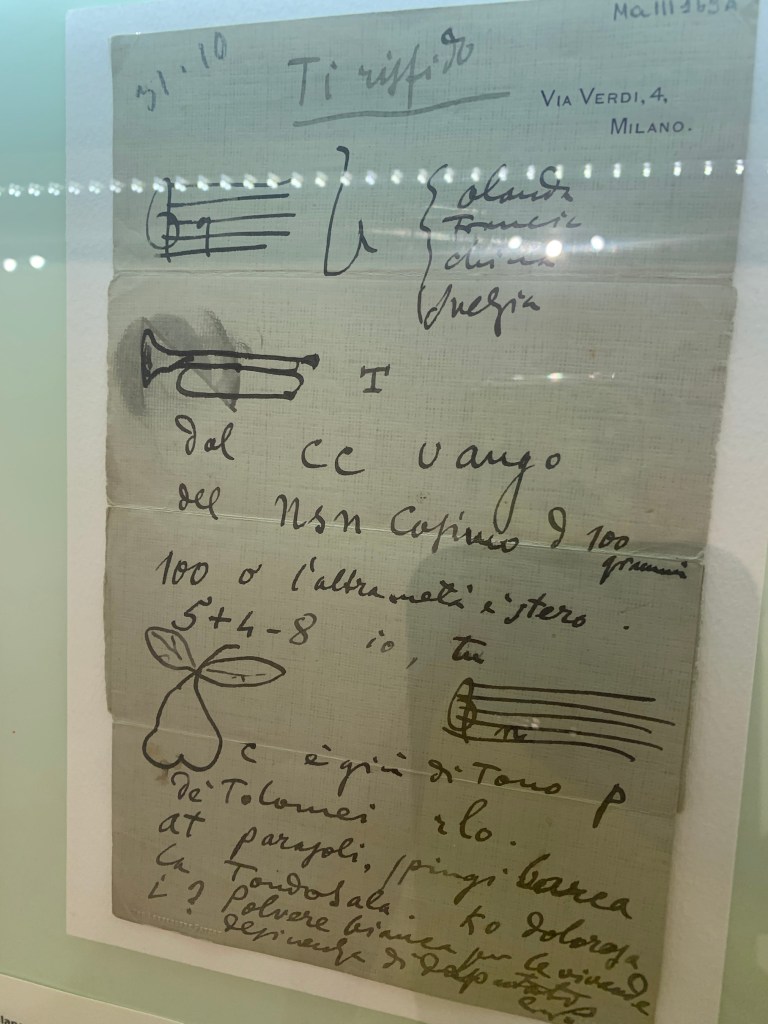 Ma III 165A
31 · 10
Ti risfido
VIA VERDI, 4,
MILANO.
g
olanda
Francia
china
Svezia
T
dal CC U ango
del NSN Cosimo D 100
grammi
100 o l'altra metà è stero .
5+4-8 io, tu
n
C è già di Tono P
de Tolomei rlo.
at parasoli, spingi barca
La Tondosala. Ko dolorosa
i ? Polvere bianca per le vivande
desinenza di